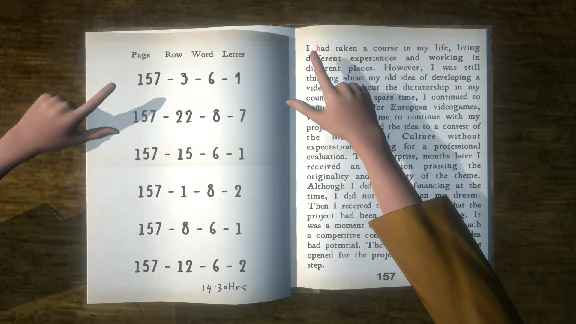 Page Row Word Letter
157 - 3 - 6 - 1
157 - 22 - 8 - 7
157 - 15 - 6 - 1
157 - 1 - 8 - 2
157 - 8 - 6 - 1
157 - 12 - 6 - 2
14:30Hrs
I had taken a course in my life, living
different experiences and working in
different places. However, I was still
about my old idea of developing a
about the dictatorship in my
spare time, I continued to
for European videogames,
me to continue with my
the idea to a contest of
the of Culture without
for a professional
evaluation. months later I
received an praising the
originality and of the theme.
Although I did financing at the
time, I did not on my dream.
Then I received that the
project had been
was a moment
a competitive
had potential. The
opened for the
step.
157